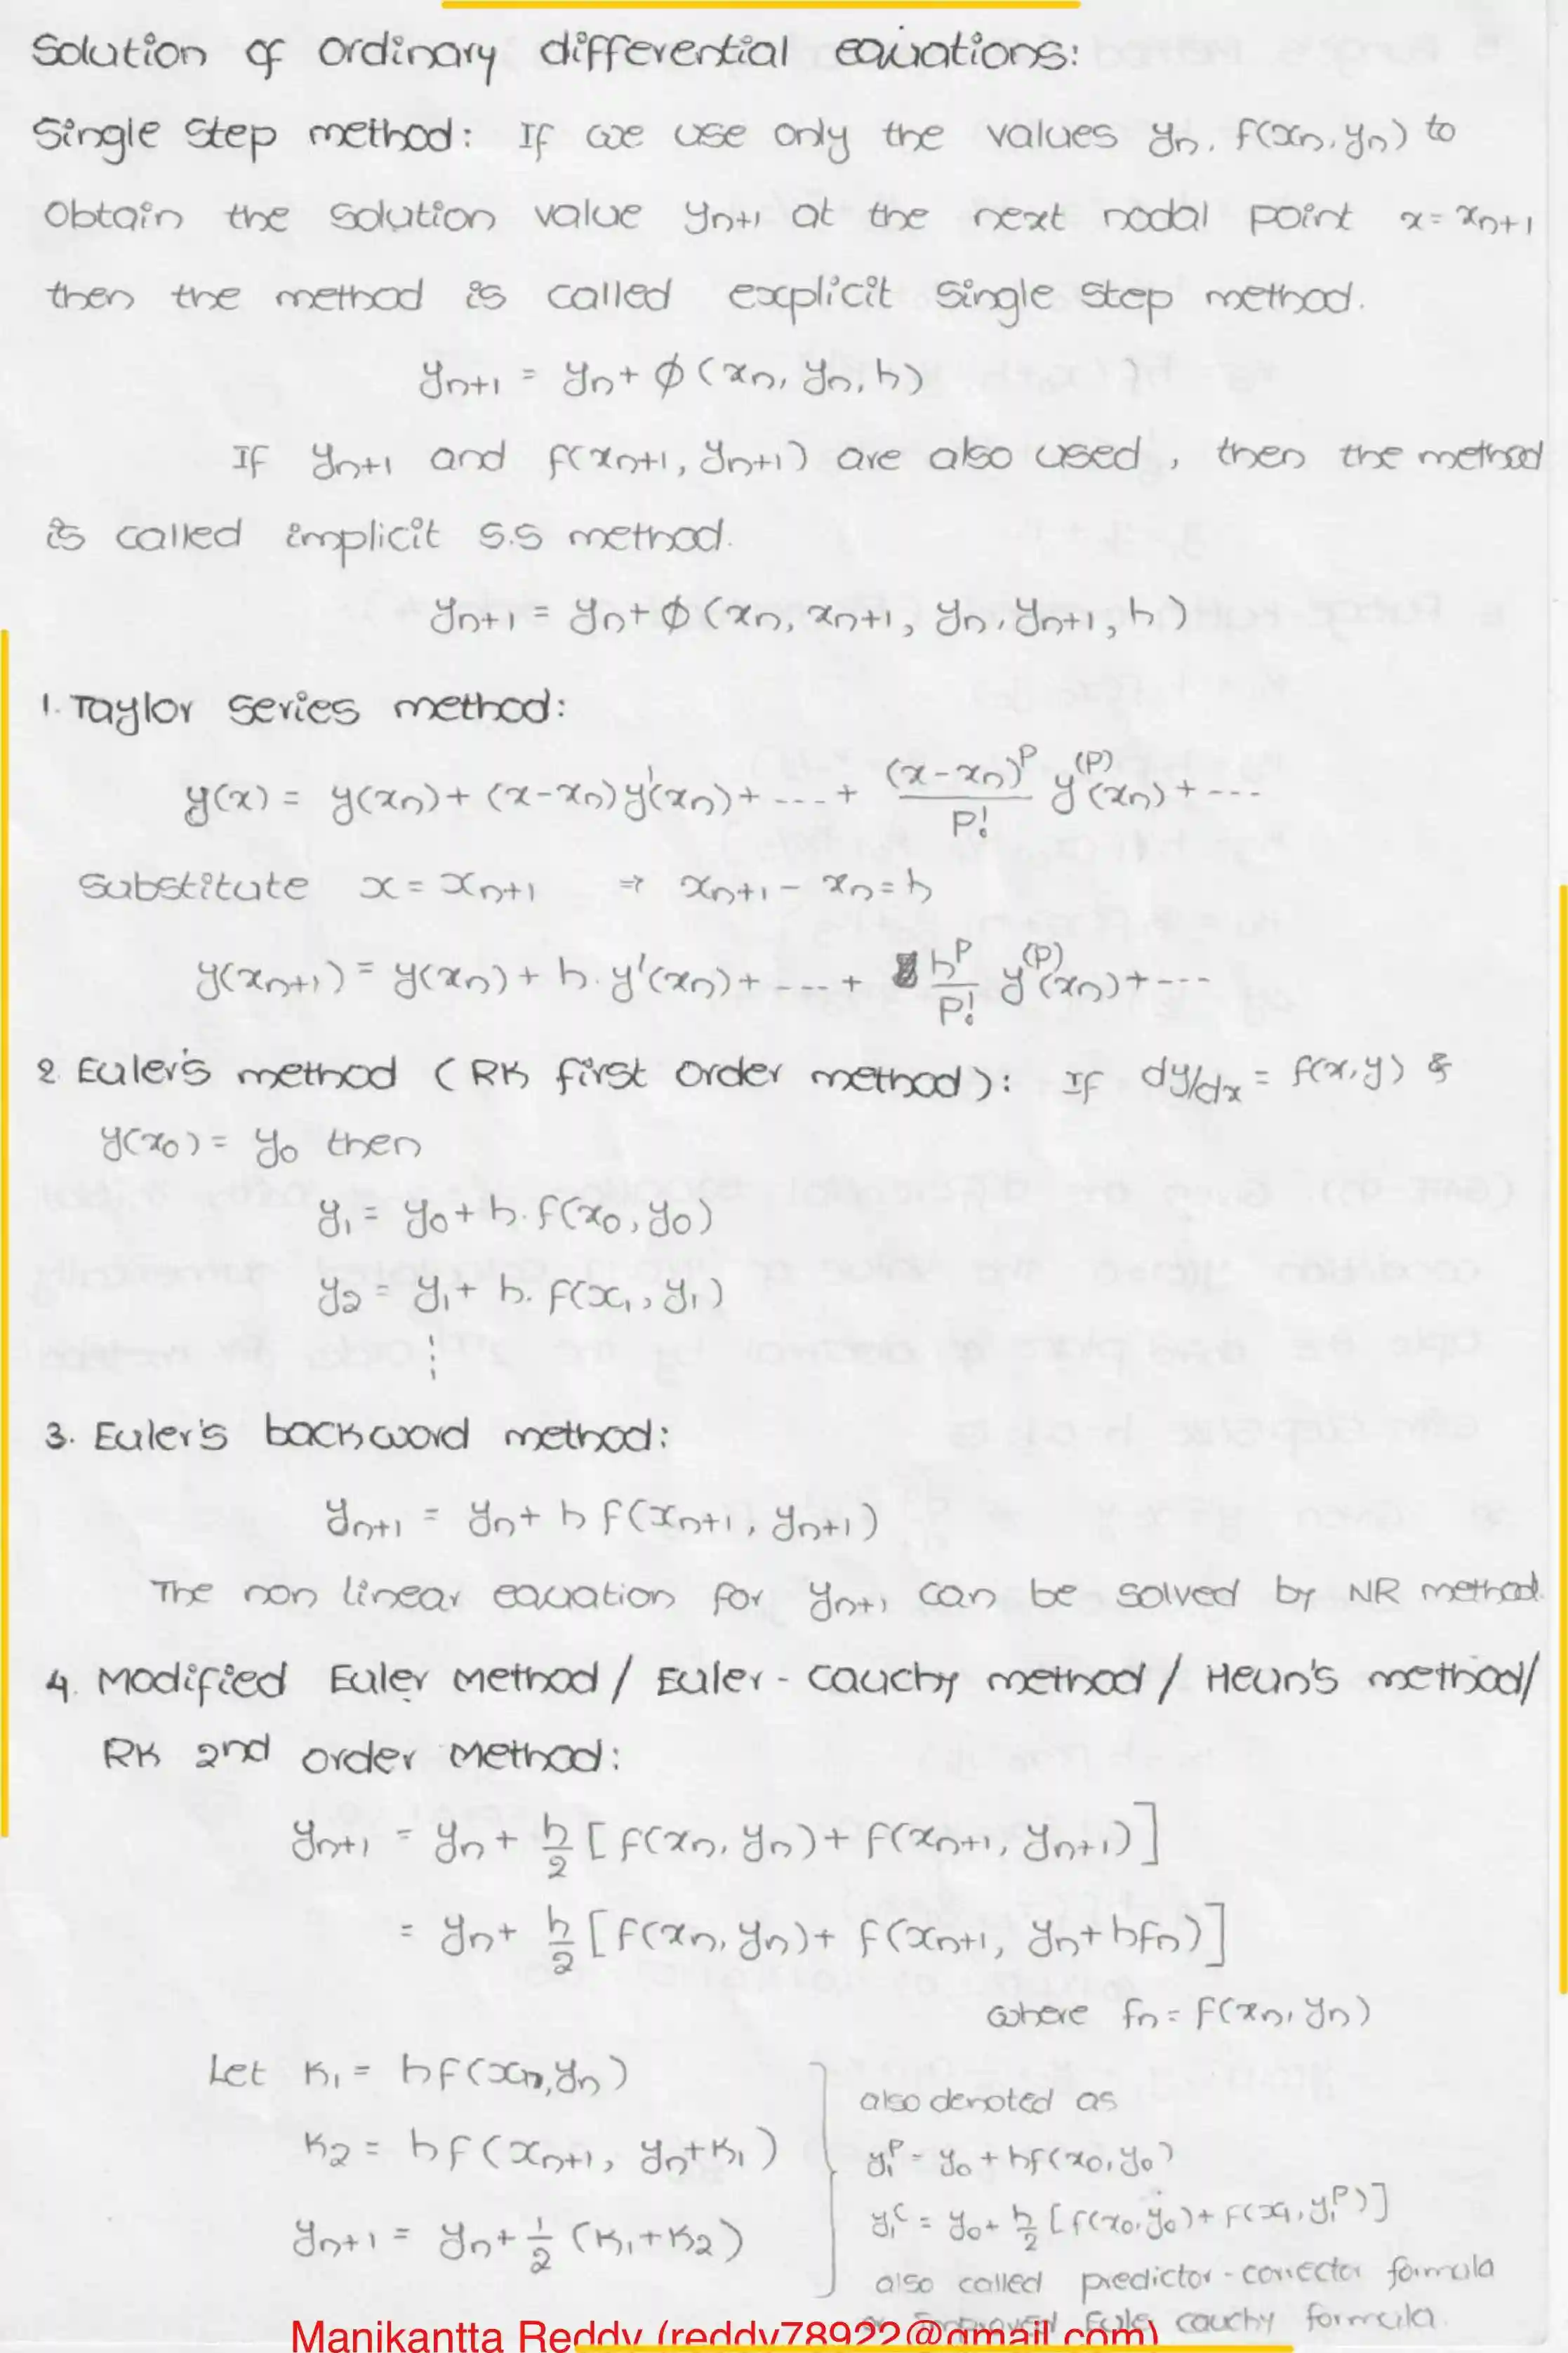 Solution of Ordinary differential equations:
Single Step method: If we use only the values yₙ, f(xₙ, yₙ) to
Obtain the solution value yₙ₊₁ at the next nodal point x = xₙ₊₁
then the method is called explicit single step method.
yₙ₊₁ = yₙ + ϕ(xₙ, yₙ, h)
If yₙ₊₁ and f(xₙ₊₁, yₙ₊₁) are also used, then the method
is called implicit S.S method.
yₙ₊₁ = yₙ + ϕ(xₙ, xₙ₊₁, yₙ, yₙ₊₁, h)
1. Taylor series method:
y(x) = y(xₙ) + (x-xₙ)y'(xₙ) + ---- + (x-xₙ)^P/P! y^(P)(xₙ) + ---
Substitute x = xₙ₊₁ ⇒ xₙ₊₁ - xₙ = h
y(xₙ₊₁) = y(xₙ) + h.y'(xₙ) + ---- + h^P/P! y^(P)(xₙ) + ---
2. Euler's method (RK first order method): If dy/dx = f(x,y) &
y(x₀) = y₀ then
y₁ = y₀ + h.f(x₀, y₀)
y₂ = y₁ + h.f(x₁, y₁)
⋮
3. Euler's backword method:
yₙ₊₁ = yₙ + h f(xₙ₊₁, yₙ₊₁)
The non linear equation for yₙ₊₁ can be solved by NR method.
4. Modified Euler Method / Euler - Cauchy method / Heun's method/
RK 2nd order Method:
yₙ₊₁ = yₙ + h/2 [f(xₙ, yₙ) + f(xₙ₊₁, yₙ₊₁)]
= yₙ + h/2 [f(xₙ, yₙ) + f(xₙ₊₁, yₙ + hfₙ)]
where fₙ = f(xₙ, yₙ)
Let K₁ = hf(xₙ, yₙ)
K₂ = hf(xₙ₊₁, yₙ + K₁)
yₙ₊₁ = yₙ + 1/2 (K₁ + K₂)
also denoted as
y₁^P = y₀ + hf(x₀, y₀)
y₁^C = y₀ + h/2 [f(x₀, y₀) + f(x₁, y₁^P)]
also called predictor - corrector formula
or Improved Euler cauchy formula.
Manikantta Reddy (reddy78922@gmail.com)